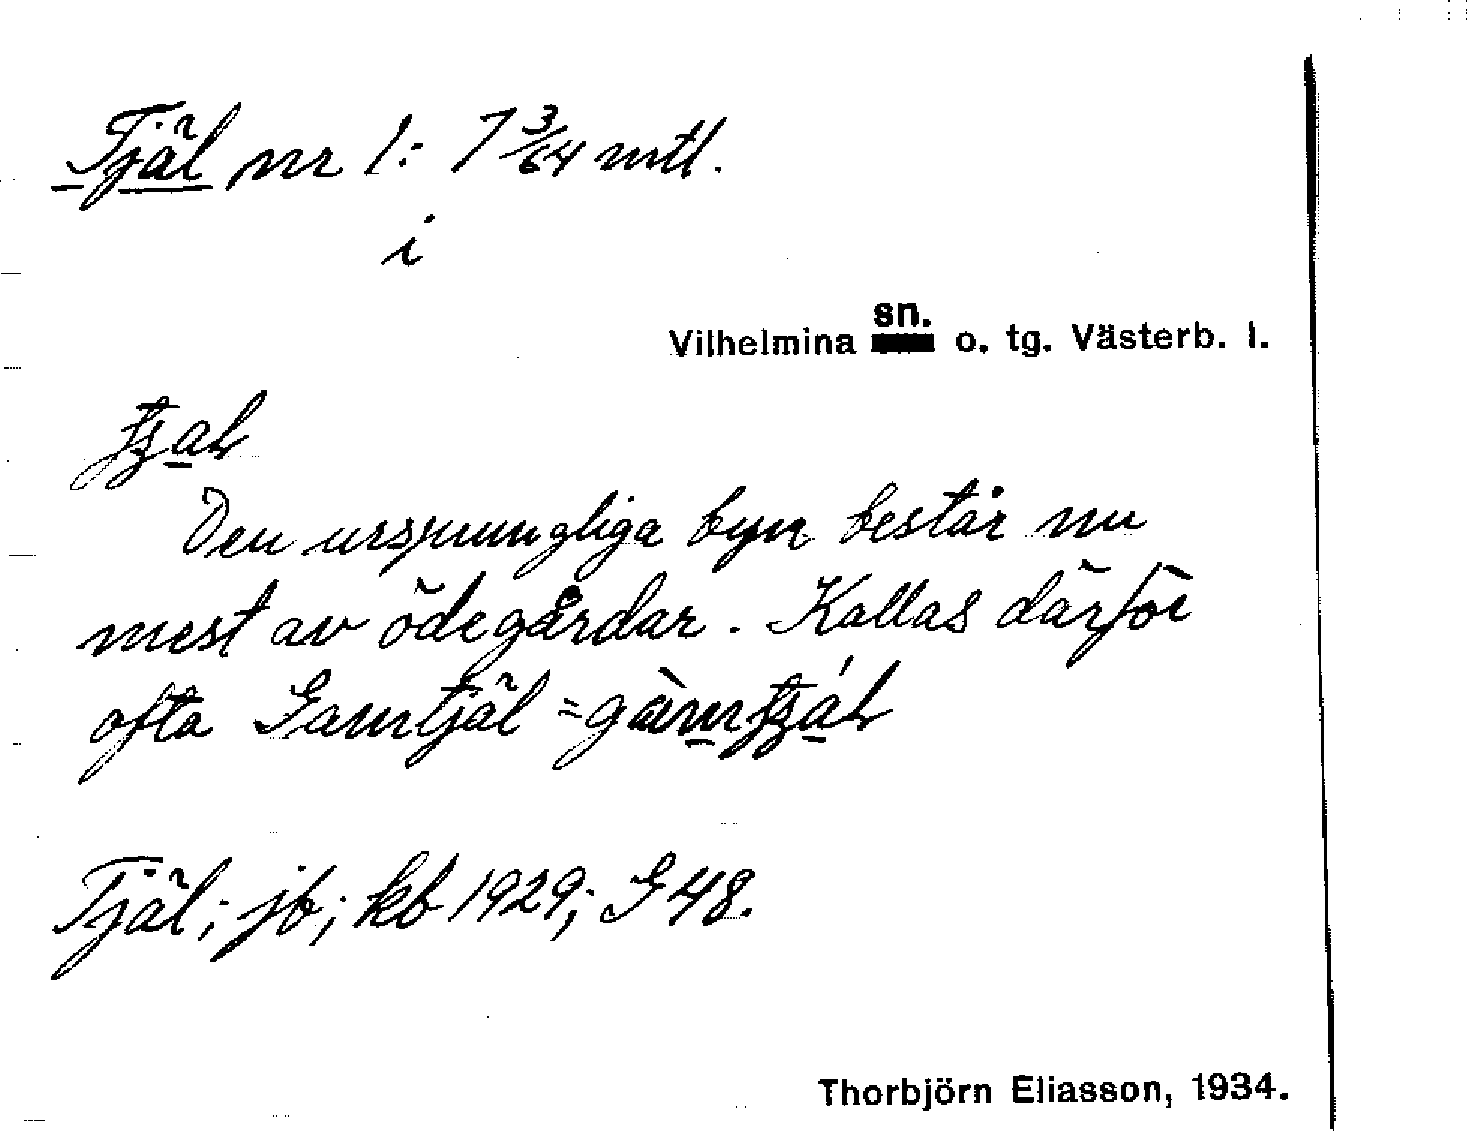 Tjäl nr 1:- 7 3/64 mtl.
i
sn.
Vilhelmina o. tg. Västerb. l.
Den ursprungliga byn består nu
mest av ödegårdar. Kallas därför
ofta Gamtjäl =
Tjäl; jb; kb 1929; G 48.
Thorbjörn Eliasson, 1934.